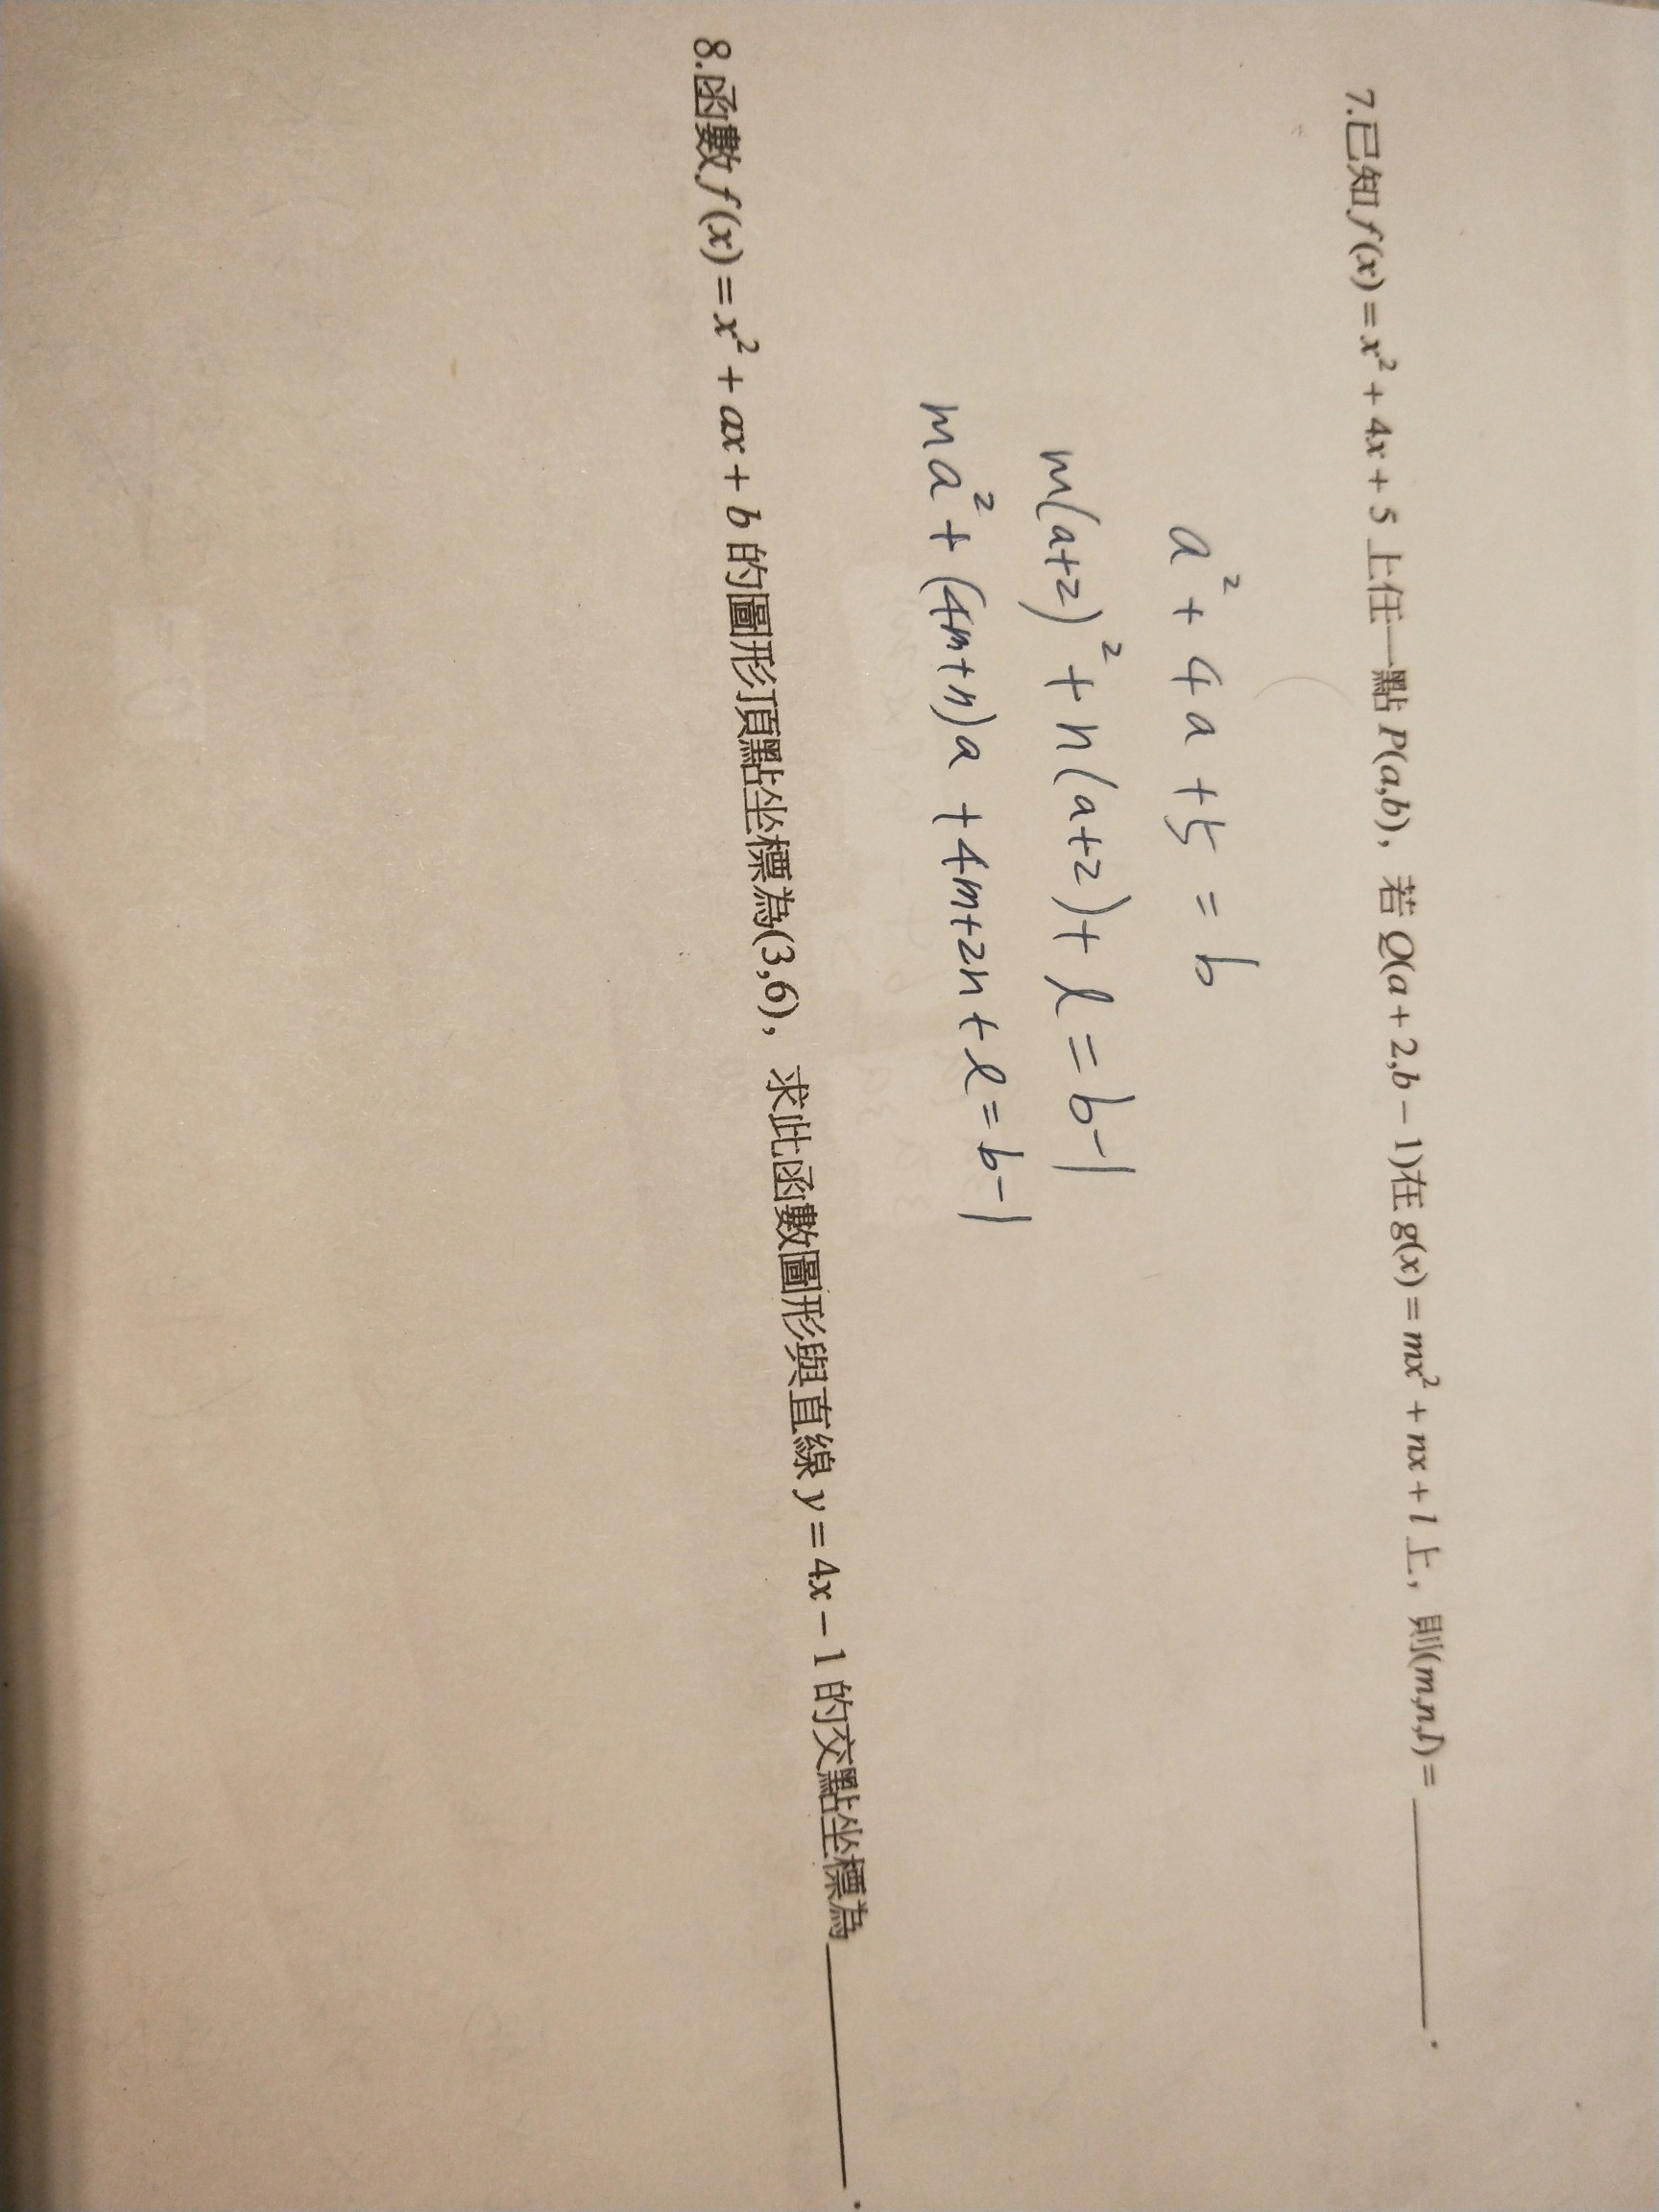 7.已知 f(x) = x² + 4x + 5 上任一點 P(a,b)，若 Q(a + 2,b − 1)在 g(x) = mx² + nx + l 上，則(m,n,l) = ________.
a² + 4a + 5 = b
m(a+2)² + n(a+2) + l = b-1
ma² + (4m+n)a + 4m+2n+l = b-1
8.函數 f(x) = x² + ax + b 的圖形頂點坐標為(3,6)，求此函數圖形與直線 y = 4x − 1 的交點坐標為________.